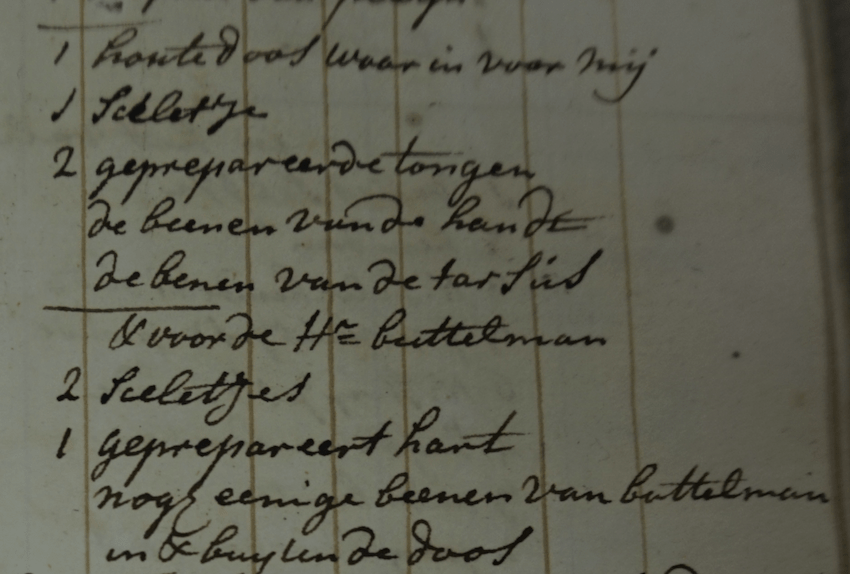 1 houte doos waar in voor mij
1 Sceletje
2 geprepareerde tongen
de beenen van de handt
de benen van de tarsus
& voor de Hr buttelman
2 Sceletjes
1 geprepareert hart
nog eenige beenen van buttelman
in & buyten de doos